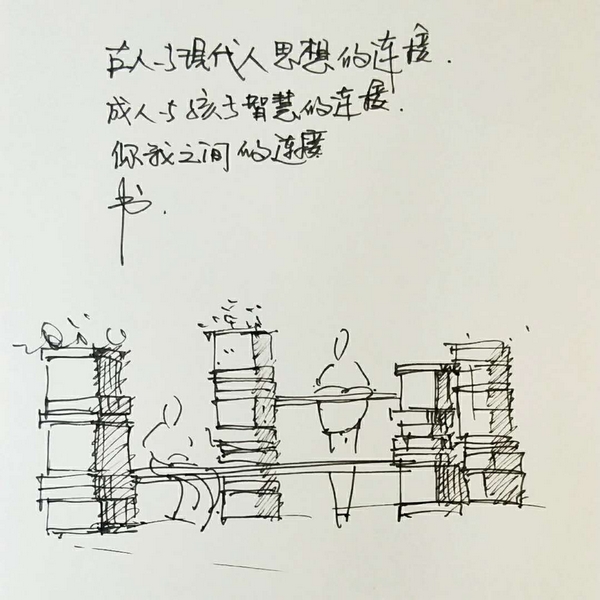 古人与现代人思想的连接.
成人与孩子智慧的连接.
你我之间的连接
书.